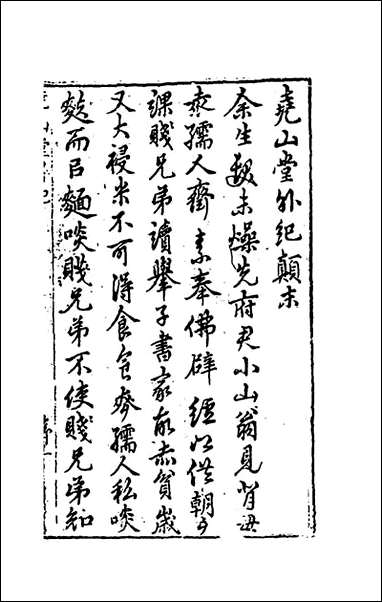 堯山堂外紀顛末
余生髮未燥先府君小山翁見背毋
袁孺人齋素奉佛辟纑以供朝夕
課賤兄弟讀舉子書家故赤貧歲
又大祲米不可得食食麥孺人私啖
麩而㠯麵啖賤兄弟不使賤兄弟知